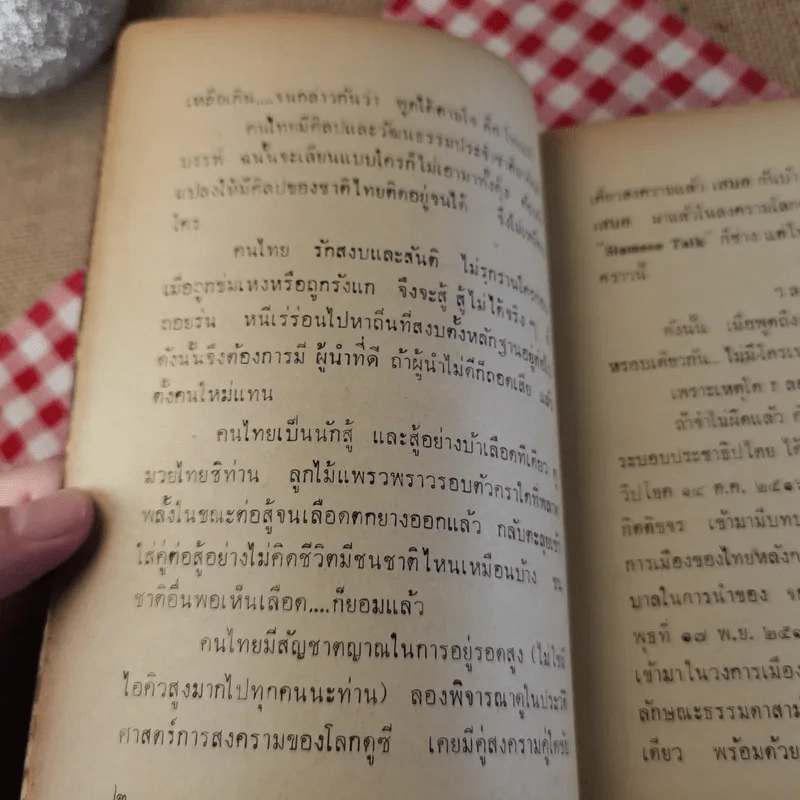 เหลือเกิน....จนกล่าวกันว่า พูดได้ตามใจ คือ
คนไทยมีศิลปและวัฒนธรรมประจำชาติ
บรรพ์ ฉนั้นจะเลียนแบบใครก็ไม่เอามาทั้งดุ้น
แปลงให้มีศิลปของชาติไทยติดอยู่จนได้ จึงไม่เหมือน
ใคร
คนไทย รักสงบและสันติ ไม่รุกรานใคร
เมื่อถูกข่มเหงหรือถูกรังแก จึงจะสู้ สู้ไม่ได้จริง ๆ ก็
ถอยร่น หนีเร่ร่อนไปหาถิ่นที่สงบตั้งหลักฐานอยู่ต่อไป
ดังนั้นจึงต้องการมี ผู้นำที่ดี ถ้าผู้นำไม่ดีก็ถอดเสีย แล้ว
ตั้งคนใหม่แทน
คนไทยเป็นนักสู้ และสู้อย่างบ้าเลือดทีเดียว ดู
มวยไทยซิท่าน ลูกไม้แพรวพราวรอบตัวคราใดที่พลาด
พลั้งในขณะต่อสู้จนเลือดตกยางออกแล้ว กลับตะลุยเข้า
ใส่คู่ต่อสู้อย่างไม่คิดชีวิตมีชนชาติไหนเหมือนบ้าง ชน
ชาติอื่นพอเห็นเลือด....ก็ยอมแล้ว
คนไทยมีสัญชาตญาณในการอยู่รอดสูง (ไม่ใช่มี
ไอคิวสูงมากไปทุกคนนะท่าน) ลองพิจารณาดูในประวัติ
ศาสตร์การสงครามของโลกดูซี เคยมีคู่สงครามคู่ใด
๒
เดียวสงครามแล้ว เสมอ กันบ้าง
เสมอ มาแล้วในสงครามโลก
"Siamese Talk" ก็ช่าง แต่
คราวนี้
ว.ล
ดังนั้น เมื่อพูดถึง
หรอบเดียวกัน... ไม่มีใคร
เพราะเหตุใด ว ล
ถ้าจำไม่ผิดแล้ว
ระบอบประชาธิปไตย ได้
วิปโยค ๑๔ ต.ค. ๒๕๑
กิตติขจร เข้ามามีบทบ
การเมืองของไทยหลังก
บาลในการนำของ จอ
พุธที่ ๑๗ พ.ย. ๒๕๑
เข้ามาในวงการเมือง
ลักษณะธรรมดาสาม
เดียว พร้อมด้วย